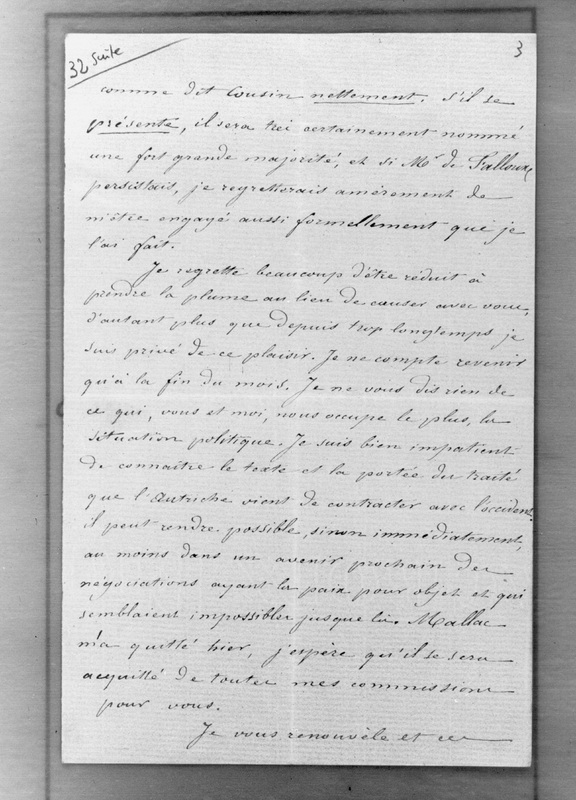 32 suite
3
comme dit Cousin nettement. s'il se
présente, il sera très certainement nommé
une fort grande majorité, et si Mr de Falloux
persistais, je regretterais amèrement de
m'être engagé aussi formellement que je
l'ai fait.
Je regrette beaucoup d'être réduit à
prendre la plume au lieu de causer avec vous,
d'autant plus que depuis trop longtemps je
suis privé de ce plaisir. Je ne compte revenir
qu'à la fin du mois. Je ne vous dis rien de
ce qui, vous et moi, nous occupe le plus, la
situation politique. Je suis bien impatient
de connaître le texte et la portée du traité
que l'Autriche vient de contracter avec l'occident.
il peut rendre possible, sinon immédiatement,
au moins dans un avenir prochain des
négociations ayant la paix pour objet et qui
semblaient impossibles jusque là. Mallac
m'a quitté hier, j'espère qu'il se sera
acquitté de toutes mes commissions
pour vous.
Je vous renouvèle et ces